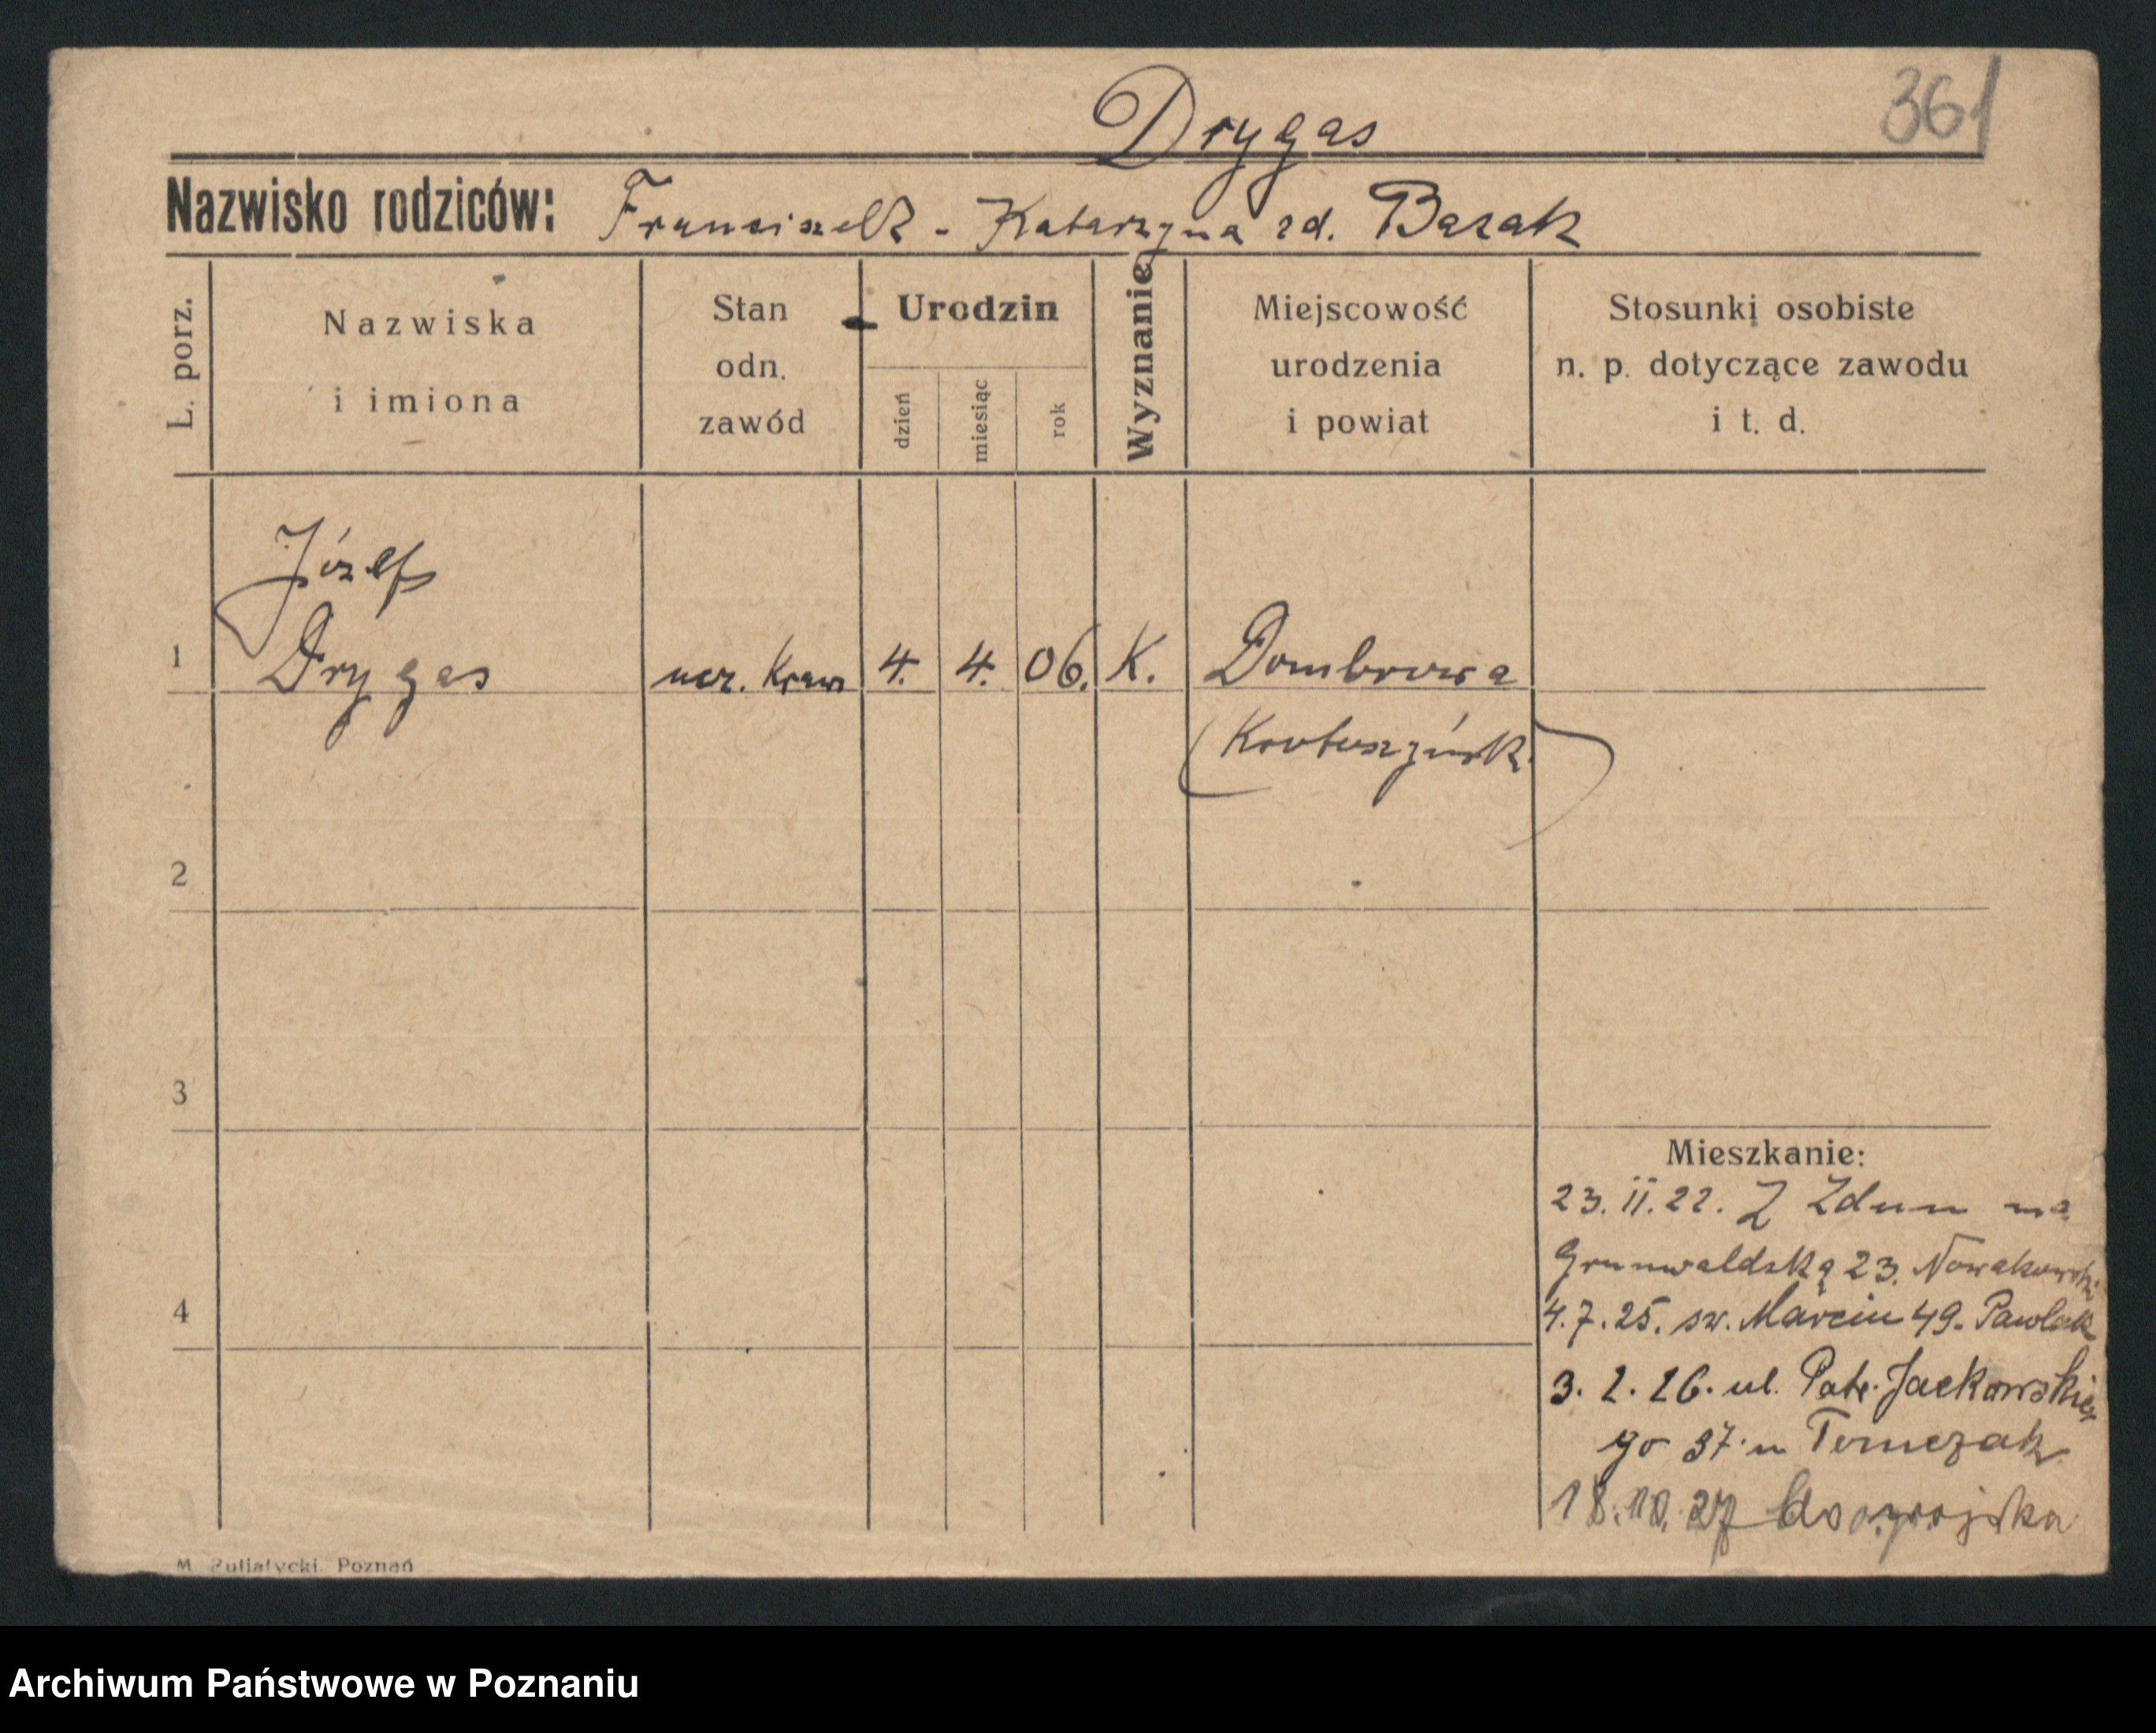 361
Drygas
Nazwisko rodziców: Franciszek - Katarzyna zd. Bazak
L. porz.
Nazwiska
i imiona
Stan
odn.
zawód
Urodzin
dzień
miesiąc
rok
Wyznanie
Miejscowość
urodzenia
i powiat
Stosunki osobiste
n. p. dotyczące zawodu
i t. d.
Józef
1 Drygas ucz. Kraw 4. 4. 06. K. Dombrowa
(Krotoszyńsk.)
2
3
4
Mieszkanie:
23. II. 22. Z Zdun na
Grunwaldską 23. Nowakowski
4.7.25. św. Marcin 49. Pawlak
3. 2. 26. ul. Patr. Jackowskie
go 37 u Tomczak
18.10.27 do wojska
M. Putiatycki, Poznań
Archiwum Państwowe w Poznaniu